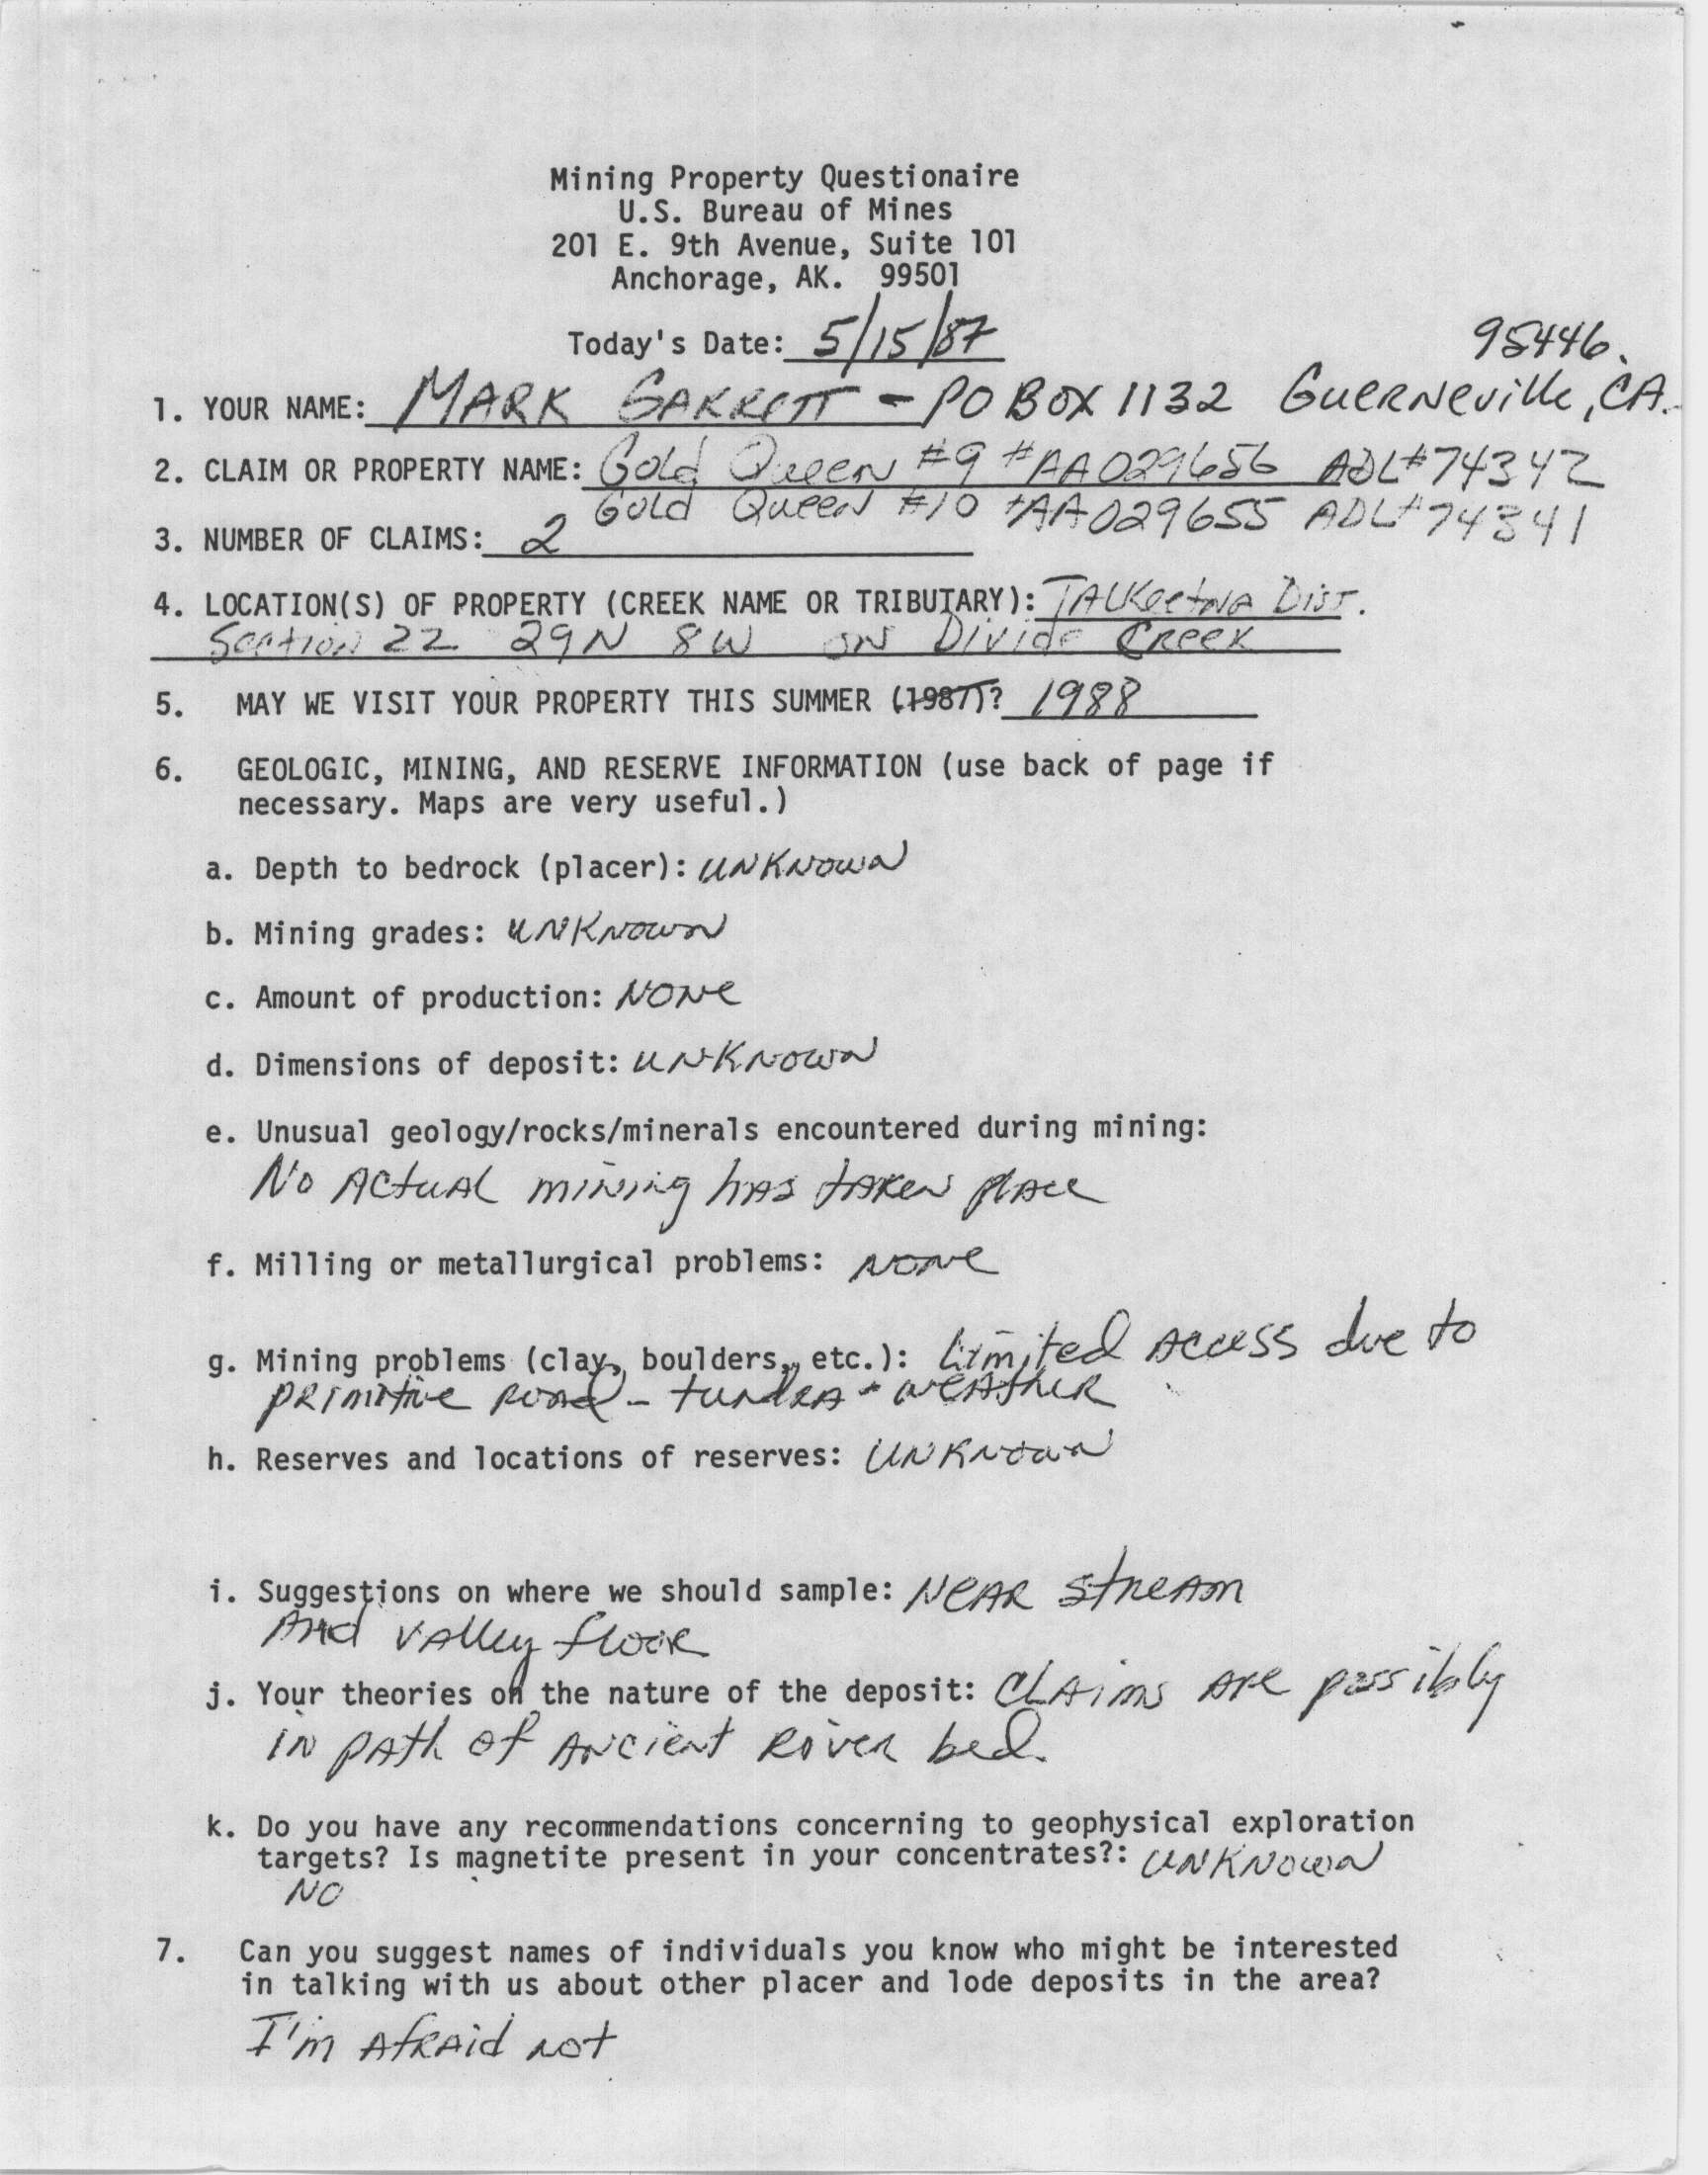 Mining Property Questionaire
U.S. Bureau of Mines
201 E. 9th Avenue, Suite 101
Anchorage, AK. 99501
Today's Date: 5/15/87
95446.
1. YOUR NAME: MARK GARRETT - PO BOX 1132 GUERNEVILLE, CA.
2. CLAIM OR PROPERTY NAME: Gold Queen #9 #AA029656 ADL#74342
Gold Queen #10 #AA029655 ADL#74341
3. NUMBER OF CLAIMS: 2
4. LOCATION(S) OF PROPERTY (CREEK NAME OR TRIBUTARY): TALKeetNA DIST.
Section 22 29N 8W ON Divide Creek
5. MAY WE VISIT YOUR PROPERTY THIS SUMMER (1987)? 1988
6. GEOLOGIC, MINING, AND RESERVE INFORMATION (use back of page if
necessary. Maps are very useful.)
a. Depth to bedrock (placer): UNKNOWN
b. Mining grades: UNKNOWN
c. Amount of production: NONE
d. Dimensions of deposit: UNKNOWN
e. Unusual geology/rocks/minerals encountered during mining:
No Actual mining has taken place
f. Milling or metallurgical problems: NONE
g. Mining problems (clay, boulders, etc.): Limited Access due to
primitive road - tundra - weather
h. Reserves and locations of reserves: UNKNOWN
i. Suggestions on where we should sample: NEAR stream
And valley floor
j. Your theories on the nature of the deposit: Claims are possibly
in path of ancient River bed.
k. Do you have any recommendations concerning to geophysical exploration
targets? Is magnetite present in your concentrates?: UNKNOWN
NO
7. Can you suggest names of individuals you know who might be interested
in talking with us about other placer and lode deposits in the area?
I'm Afraid not